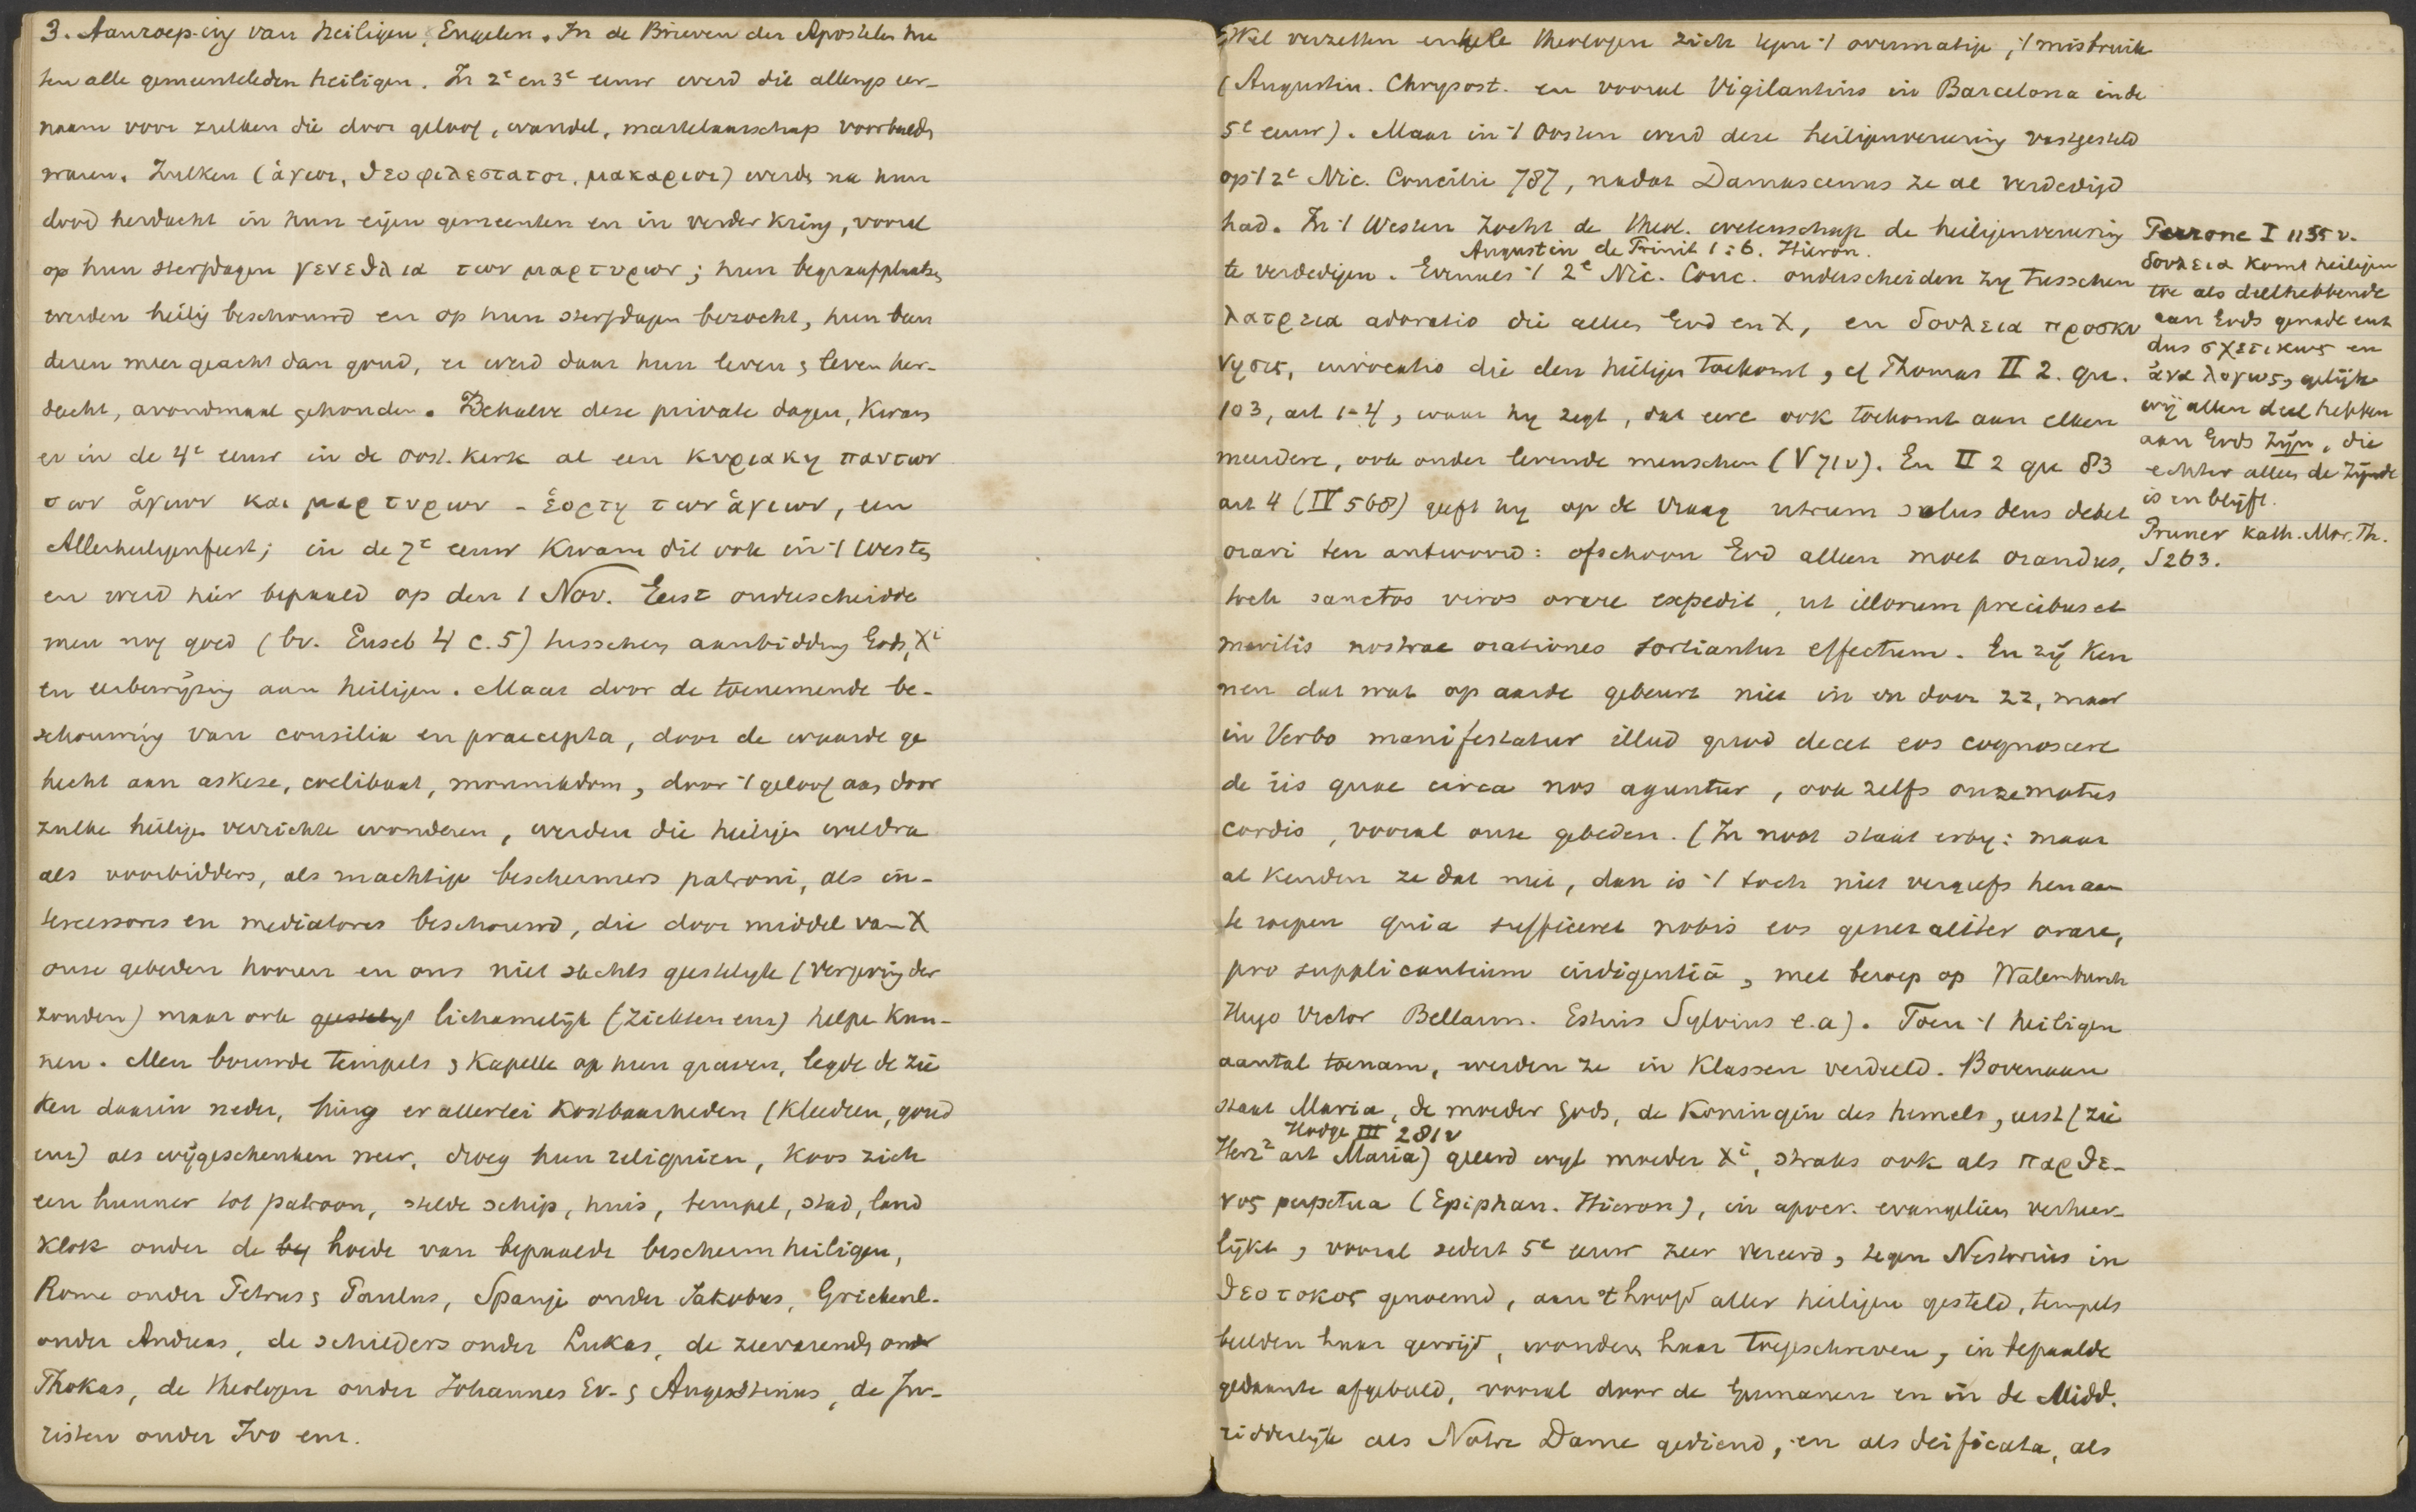 3. Aanroeping van heiligen, Engelen. In de Brieven der Apostelen hee
ten alle gemeenteleden heiligen. In 2e en 3e eeuw werd die allengs eer-
naam voor zulken die door geloof, wandel, martelaarschap voorbeeld
waren. Zulken (ἁγιοι, θεοφιλεστατοι, μακαριοι) werden na hun
dood herdacht in hun eigen gemeenten en in verder kring, vooral
op hun sterfdagen γενεθλια των μαρτυρων; hun begraafplaatsen
werden heilig beschouwd en op hun sterfdagen bezocht, hun been
deren meer geacht dan goud, er werd daar hun leven & leven her-
dacht, avondmaal gehouden. Behalve deze private dagen, kwam
er in de 4e eeuw in de oost. kerk al een κυριακη παντων
των ἁγιων και μαρτυρων - ἑορτη των ἁγιων, een
Allerheiligenfeest; in de 7e eeuw kwam dit ook in 't Westen
en werd hier bepaald op den 1 Nov. Eerst onderscheidde
men nog goed (bv. Euseb 4 c. 5) tusschen aanbidding Gods, Xi
en eerbewijzing aan heiligen. Maar door de toenemende be-
schouwing van consilia en praecepta, door de waarde ge
hecht aan askese, coelibaat, monnikdom, door 't geloof aan door
zulke heiligen verrichte wonderen, werden die heiligen weldra
als voorbidders, als machtige beschermers patroni, als in-
tercessores en mediatores beschouwd, die door middel van X
onze gebeden hooren en ons niet slechts geestelyk (vergeving der
zonden) maar ook geestelyk lichamelijk (ziekten enz) helpen kun-
nen. Men bouwde tempels & kapellen op hun graven, legde de zie
ken daarin neder, hing er allerlei kostbaarheden (kleedren, goud
enz) als wijgeschenken neer, droeg hun reliquien, koos zich
een hunner tot patroon, stelde schip, huis, tempel, stad, land
klok onder de by hoede van bepaalde beschermheiligen,
Rome onder Petrus & Paulus, Spanje onder Jakobus, Griekenl.
onder Andreas, de schilders onder Lukas, de zeevarenden onder
Phokas, de theologen onder Johannes Ev. & Augustinus, de Ju-
risten onder Ivo enz.
Wel verzetten enkele theologen zich tegen 't overmatige, 't misbruik
(Augustin. Chrysost. en vooral Vigilantius in Barcelona in de
5e eeuw). Maar in 't Oosten werd deze heiligenvereering vastgesteld
op 't 2e Nic. Concilie 787, nadat Damascenus ze al verdedigd
had. In 't Westen zocht de theol. wetenschap de heiligenvereering
Augustin de Trinit 1:6. Hieron.
te verdedigen. Evenals 't 2e Nic. Conc. onderscheiden zy tusschen
λατρεια adoratio die alleen God en X, en δουλεια προσκυ
νησις, invocatio die den heiligen toekomt, cf Thomas II 2. qu.
103, art 1-4, waar hy zegt, dat eere ook toekomt aan elken
meerdere, ook onder levende menschen (V 71v). En II 2 qu 83
art 4 (IV 568) geeft hy op de vraag utrum solus deus debet
orari ten antwoord: ofschoon God alleen moet orandus,
toch sanctos viros orare expedit, ut illorum precibus et
meritis nostrae orationes sortiantur effectum. En zij ken
nen dat wat op aarde gebeurt niet in en door zz, maar
in Verbo manifestatur illud quod decet eos cognoscere
de iis quae circa nos aguntur, ook zelfs onze motus
cordis, vooral onze gebeden. (In noot staat erby: maar
al kenden ze dat niet, dan is 't toch niet vergeefs hen aan
te roepen quia sufficeret nobis eos generaliter orare,
pro supplicantium indigentiâ, met beroep op Walemburch
Hugo Victor Bellarm. Estius Sylvius e.a). Toen 't heiligen
aantal toenam, werden ze in klassen verdeeld. Bovenaan
staat Maria, de moeder Gods, de koningin des hemels, eerst (zie
Hodge III 281v
Herz² art Maria) geeerd wyl moeder Xi, straks ook als παρθε-
νος perpetua (Epiphan. Hieron), in apocr. evangelien verheer-
lijkt, vooral sedert 5e eeuw zeer vereerd, tegen Nestorius in
θεοτοκος genoemd, aan 't hoofd aller heiligen gesteld, tempels
beelden haar gewijd, wonderen haar toegeschreven, in bepaalde
gedaante afgebeeld, vooral door de Germanen en in de Midd.
ridderlijk als Notre Dame gediend, en als deificata, als
Perrone I 1155 v.
δουλεια komt heiligen
toe als deelhebbende
aan Gods genade enz
dus σχετικως en
ἀναλογως, gelijk
wij allen deel hebben
aan Gods zijn, die
echter alleen de zijnde
is en blijft.
Pruner Kath. Mor. Th.
S 263.